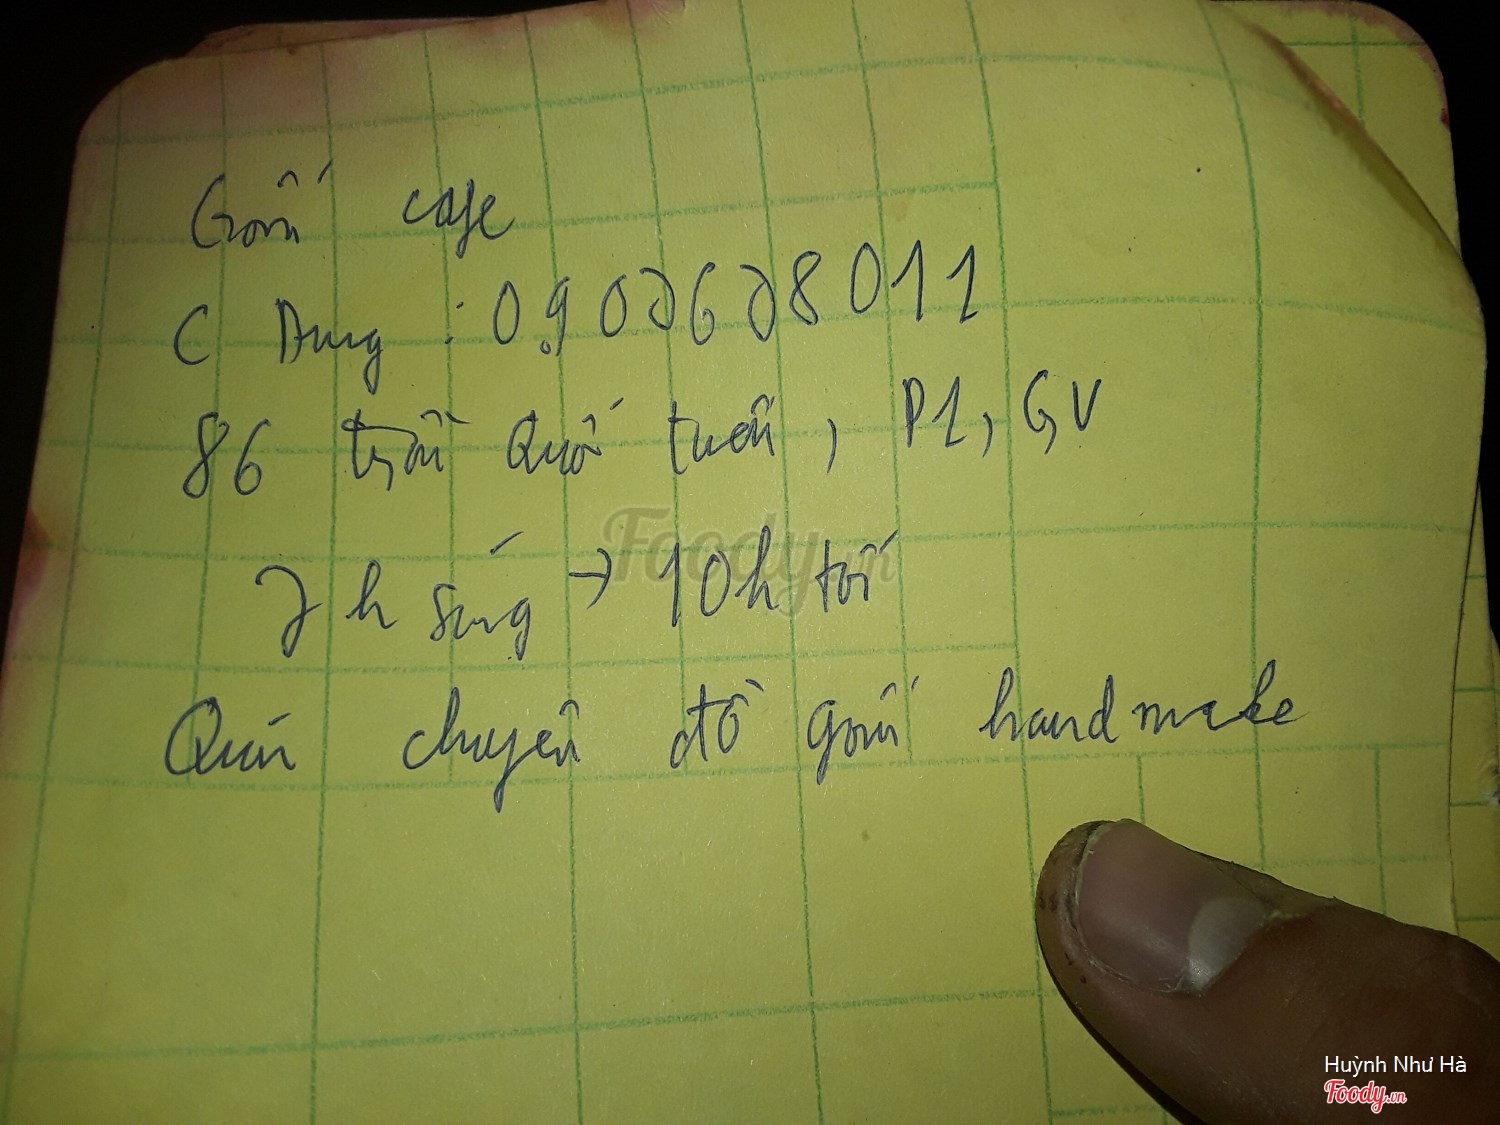 Gốm cafe
C Dung : 0902628011
86 trần Quốc tuấn, P1, GV
7h sáng → 10h tối
Quán chuyên đồ gốm handmake
Foody.vn
Huỳnh Như Hà
Foody.vn